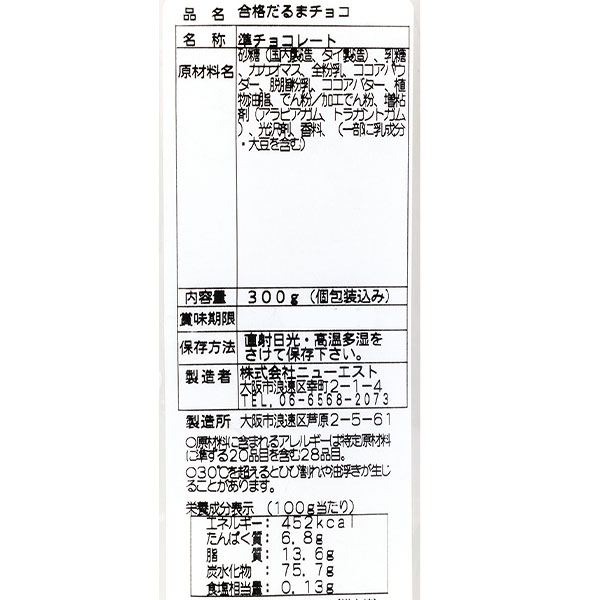 品名 合格だるまチョコ
名称 準チョコレート
原材料名 砂糖（国内製造、タイ製造）、乳糖
、カカオマス、全粉乳、ココアパウ
ダー、脱脂粉乳、ココアバター、植
物油脂、でん粉／加工でん粉、増粘
剤（アラビアガム、トラガントガム
）、光沢剤、香料、（一部に乳成分
・大豆を含む）
内容量 300g（個包装込み）
賞味期限
保存方法 直射日光・高温多湿を
さけて保存下さい。
製造者 株式会社ニューエスト
大阪市浪速区幸町2-1-4
TEL.06-6568-2073
製造所 大阪市浪速区芦原2-5-61
○原材料に含まれるアレルギーは特定原材料
に準ずる20品目を含む28品目。
○30℃を超えるとひび割れや油浮きが生じ
ることがあります。
栄養成分表示（100g当たり）
エネルギー：452kcal
たんぱく質：6.8g
脂質：13.6g
炭水化物：75.7g
食塩相当量：0.13g